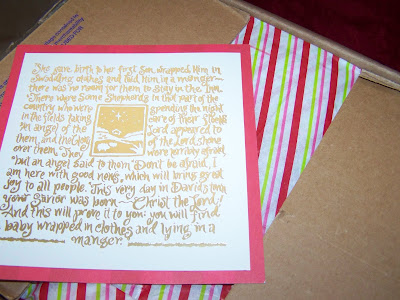 She gave birth to her first son, wrapped Him in
swaddling clothes and laid Him in a manger~
there was no room for them to stay in the Inn.
There were Some Shepherds in that part of the
country who were spending the night
in the fields taking care of their flocks
An angel of the Lord appeared to
them, and the Glory of the Lord shone
over them. They were terribly afraid,
but an angel said to them "Don't be afraid, i
am here with good news, which will bring great
joy to all people. This very day in David's town
your Savior was born ~ Christ the Lord!
And this will prove it to you: you will find
a baby wrapped in clothes and lying in a
manger."